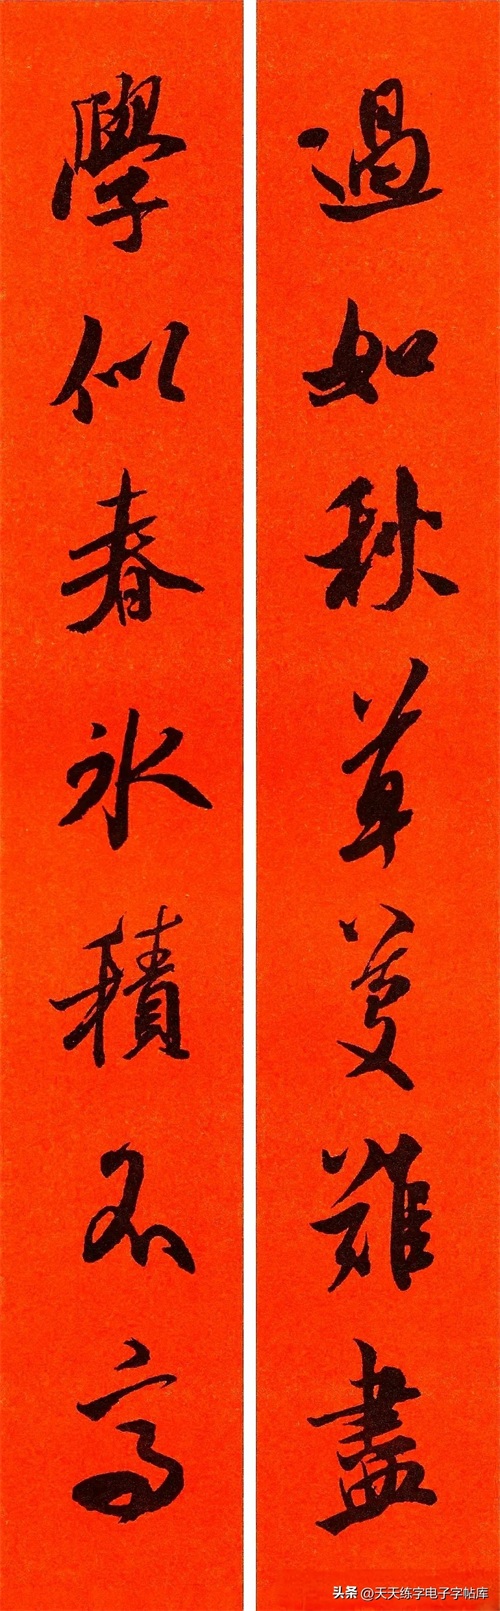 過如秋草芟難盡
學似春冰積不高
头条 @天天练字电子字帖库